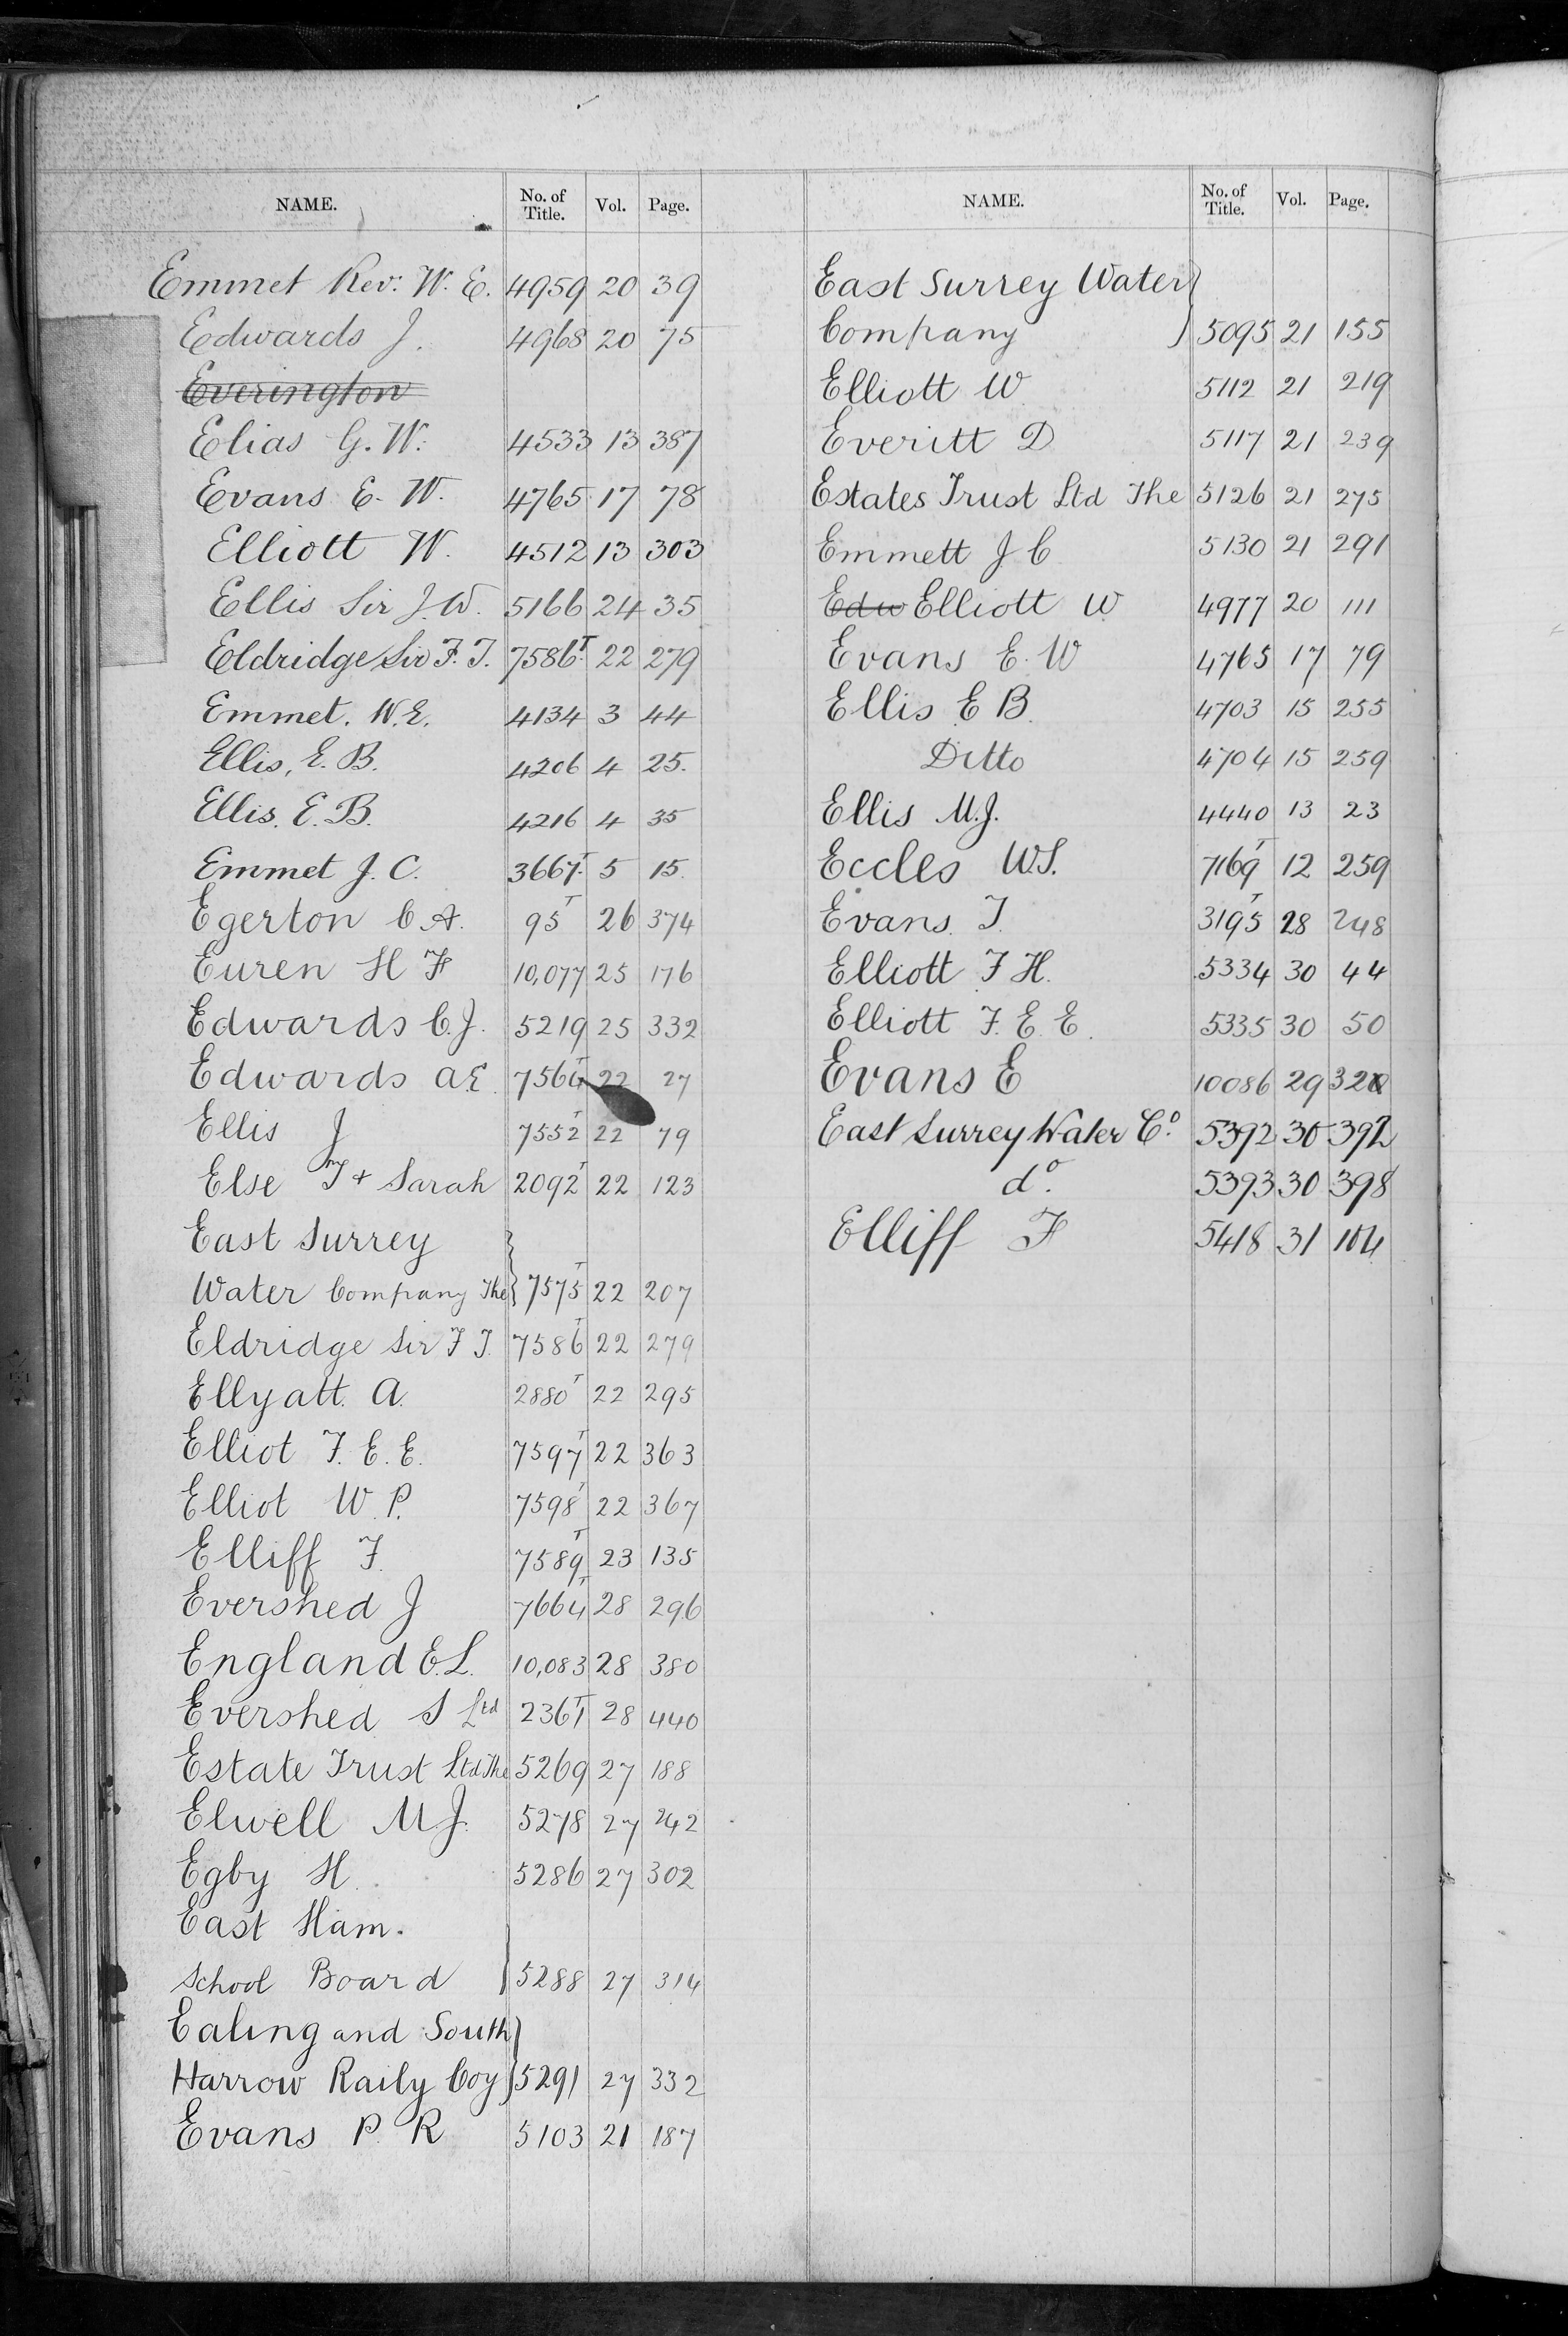 NAME. No. of Title. Vol. Page.
Emmet Rev: W. E. 4959 20 39
Edwards J. 4968 20 75
Everington
Elias G. W. 4533 13 387
Evans E. W. 4765 17 78
Elliott W. 4512 13 303
Ellis Sir J. W. 5166 24 35
Eldridge Sir F. T. 7586T 22 279
Emmet. W. E. 4134 3 44
Ellis, E. B. 4206 4 25.
Ellis. E. B. 4216 4 35
Emmet J. C. 3667T 5 15.
Egerton C A. 95T 26 374
Euren H F 10,077 25 176
Edwards C. J. 5219 25 332
Edwards A E. 7564T 22 27
Ellis J 7552T 22 79
Else T + Sarah 2092T 22 123
East Surrey
Water Company The 7575T 22 207
Eldridge Sir F T. 7586T 22 279
Ellyatt. A. 2880T 22 295
Elliot F. E. E. 7597T 22 363
Elliot W. P. 7598T 22 367
Elliff F. 7589T 23 135
Evershed J 7664T 28 296
England E. L. 10,083 28 380
Evershed S Ltd 2361T 28 440
Estate Trust Ltd The 5269 27 188
Elwell M J. 5278 27 242
Egby H. 5286 27 302
East Ham.
School Board 5288 27 314
Ealing and South
Harrow Raily Coy 5291 27 332
Evans P. R 5103 21 187
NAME. No. of Title. Vol. Page.
East Surrey Water
Company 5095 21 155
Elliott W 5112 21 219
Everitt D 5117 21 239
Estates Trust Ltd The 5126 21 275
Emmett J C 5130 21 291
Edw Elliott W 4977 20 111
Evans E. W 4765 17 79
Ellis E B. 4703 15 255
Ditto 4704 15 259
Ellis M. J. 4440 13 23
Eccles W. S. 7169T 12 259
Evans. T. 3195T 28 248
Elliott F H. 5334 30 44
Elliott F. E. E. 5335 30 50
Evans E 10086 29 320
East Surrey Water Co. 5392 30 392
do. 5393 30 398
Elliff F 5418 31 104